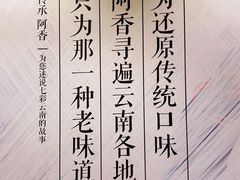 为还原传统口味
阿香寻遍云南各地
只为那一种老味道
—为您述说七彩云南的故事
传承 阿香